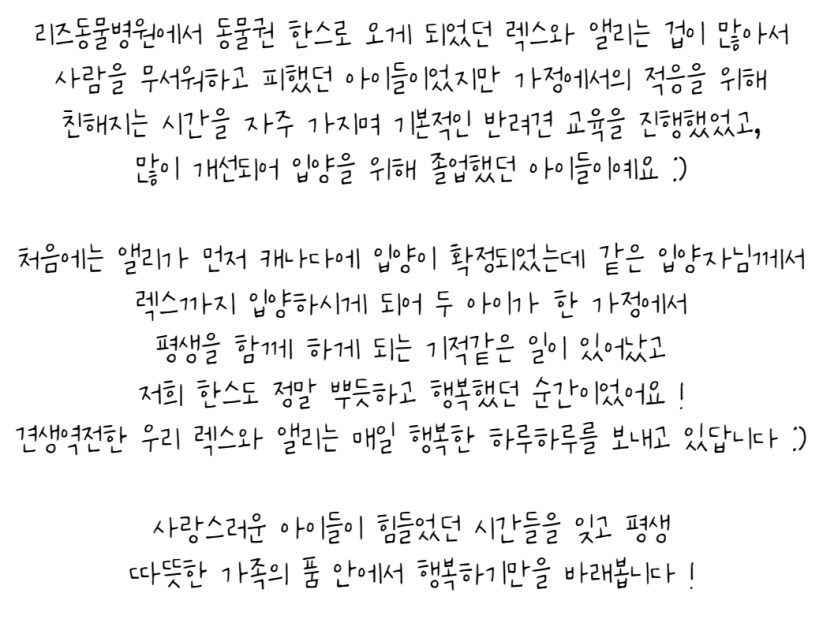 리즈동물병원에서 동물권 한스로 오게 되었던 렉스와 앨리는 겁이 많아서
사람을 무서워하고 피했던 아이들이었지만 가정에서의 적응을 위해
친해지는 시간을 자주 가지며 기본적인 반려견 교육을 진행했었고,
많이 개선되어 입양을 위해 졸업했던 아이들이예요 :)
처음에는 앨리가 먼저 캐나다에 입양이 확정되었는데 같은 입양자님께서
렉스까지 입양하시게 되어 두 아이가 한 가정에서
평생을 함께 하게 되는 기적같은 일이 있어났고
저희 한스도 정말 뿌듯하고 행복했던 순간이었어요 !
견생역전한 우리 렉스와 앨리는 매일 행복한 하루하루를 보내고 있답니다 :)
사랑스러운 아이들이 힘들었던 시간들을 잊고 평생
따뜻한 가족의 품 안에서 행복하기만을 바래봅니다 !